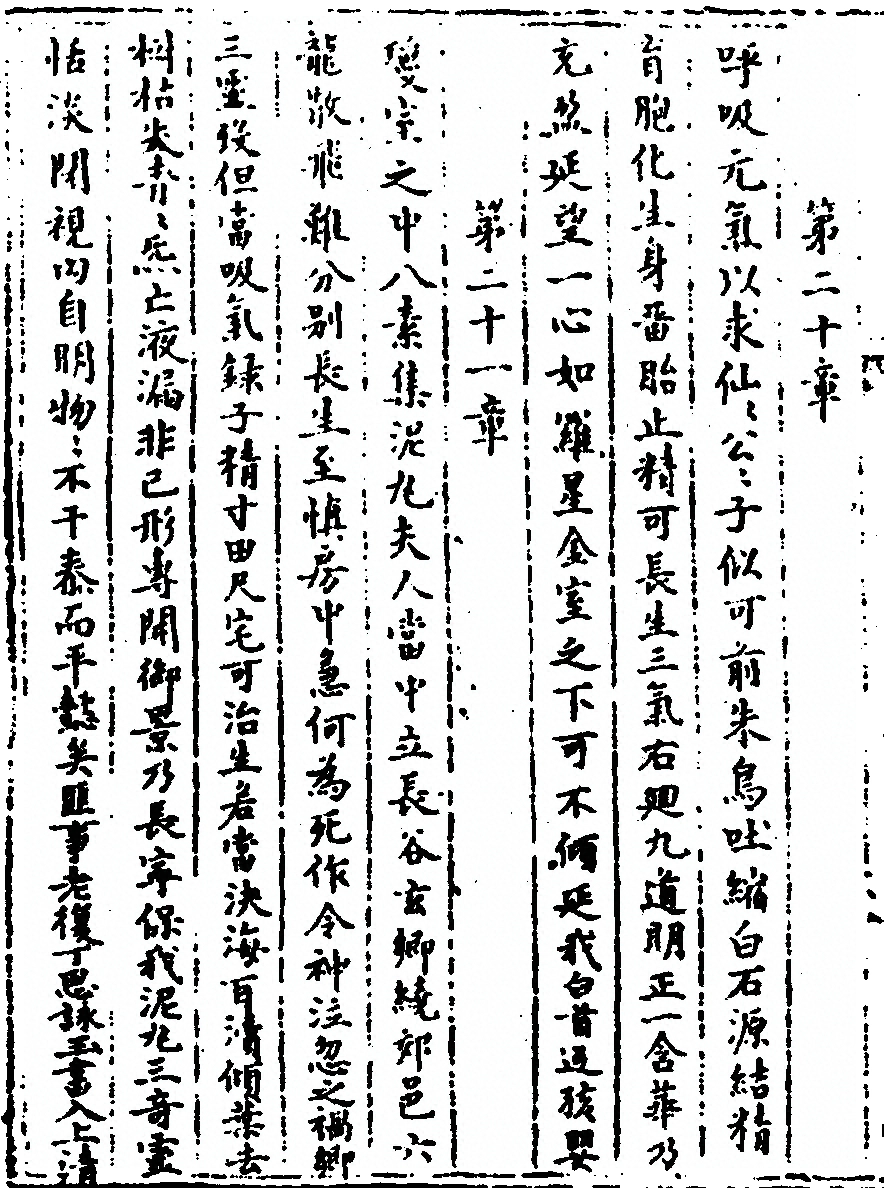 第二十章
呼吸元氣以求仙〻公〻子似可前朱鳥吐縮白石源結精
育胞化生身畱胎止精可長生三氣右迴九道明正一含華乃
充盈延望一心如羅星金室之下可不傾延我白首返孩嬰
第二十一章
璚室之中八素集泥丸夫人當中立長谷玄鄉繞郊邑六
龍散飛難分別長生至慎房中急何為死作令神泣忽之禍鄉
三靈歿但當吸氣録子精寸田尺宅可治生若當决海百瀆傾葉去
樹枯失青〻炁亡液漏非己形專閉御景乃長寧保我泥丸三奇靈
恬淡閉視內自明物〻不干泰而平愨矣匪事老復丁思詠玉書入上清